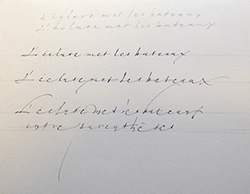 L'écluse met les bateaux
L'écluse met les bateaux
L'écluse met les bateaux
L'écluse met les bateaux
L'écluse met
entre parenthèses